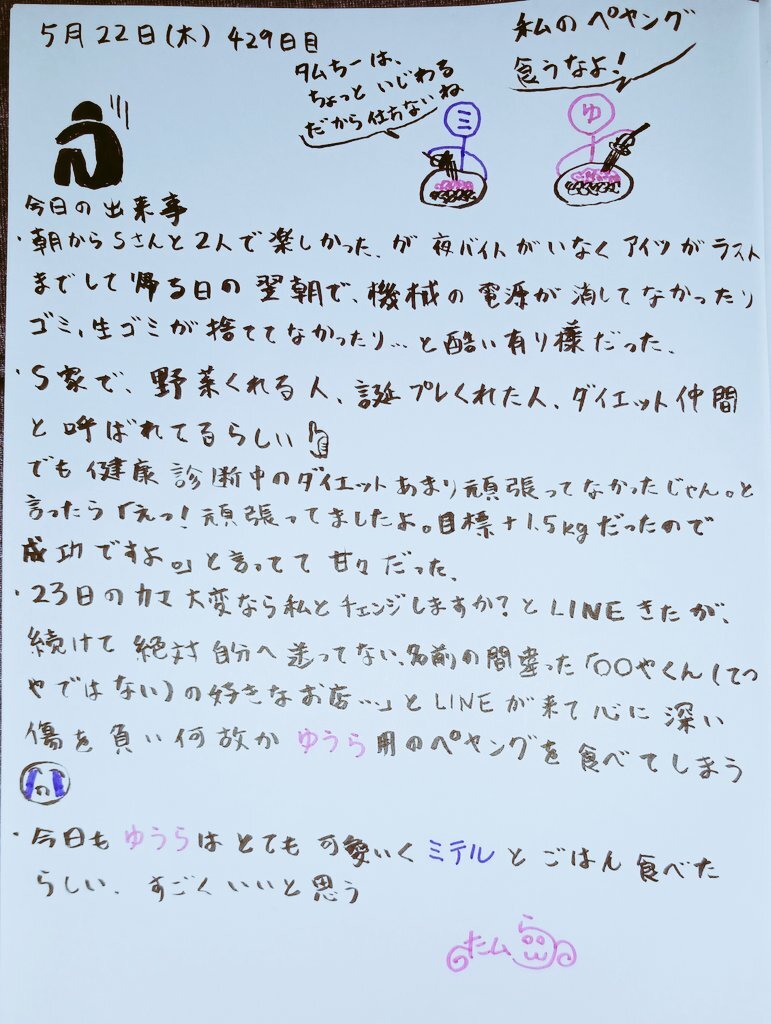 5月22日(木) 429日目
私のペヤング
食うなよ!
タムちーは、
ちょっといじわる
だから仕方ないね
ミ
ゆ
今日の出来事
・朝からSさんと2人で楽しかった、が 夜バイトがいなくアイツがラスト
までして帰る日の翌朝で、機械の電源が消してなかったり
ゴミ、生ゴミが捨ててなかったり…と酷い有り様だった、
・S家で、野菜くれる人、誕プレくれた人、ダイエット仲間
と呼ばれてるらしい
でも健康診断中のダイエットあまり頑張ってなかったじゃん。と
言ったら「えっ!頑張ってましたよ。目標+1.5kgだったので
成功ですよ。」と言ってて甘々だった、
・23日のカマ大変なら私とチェンジしますか?とLINEきたが、
続けて絶対自分へ送ってない、名前の間違った「〇〇やくん(てつ
やではない)の好きなお店…」とLINEが来て心に深い
傷を負い何故かゆうら用のペヤングを食べてしまう
・今日もゆうらはとても可愛いくミテルとごはん食べた
らしい、すごくいいと思う
たムら